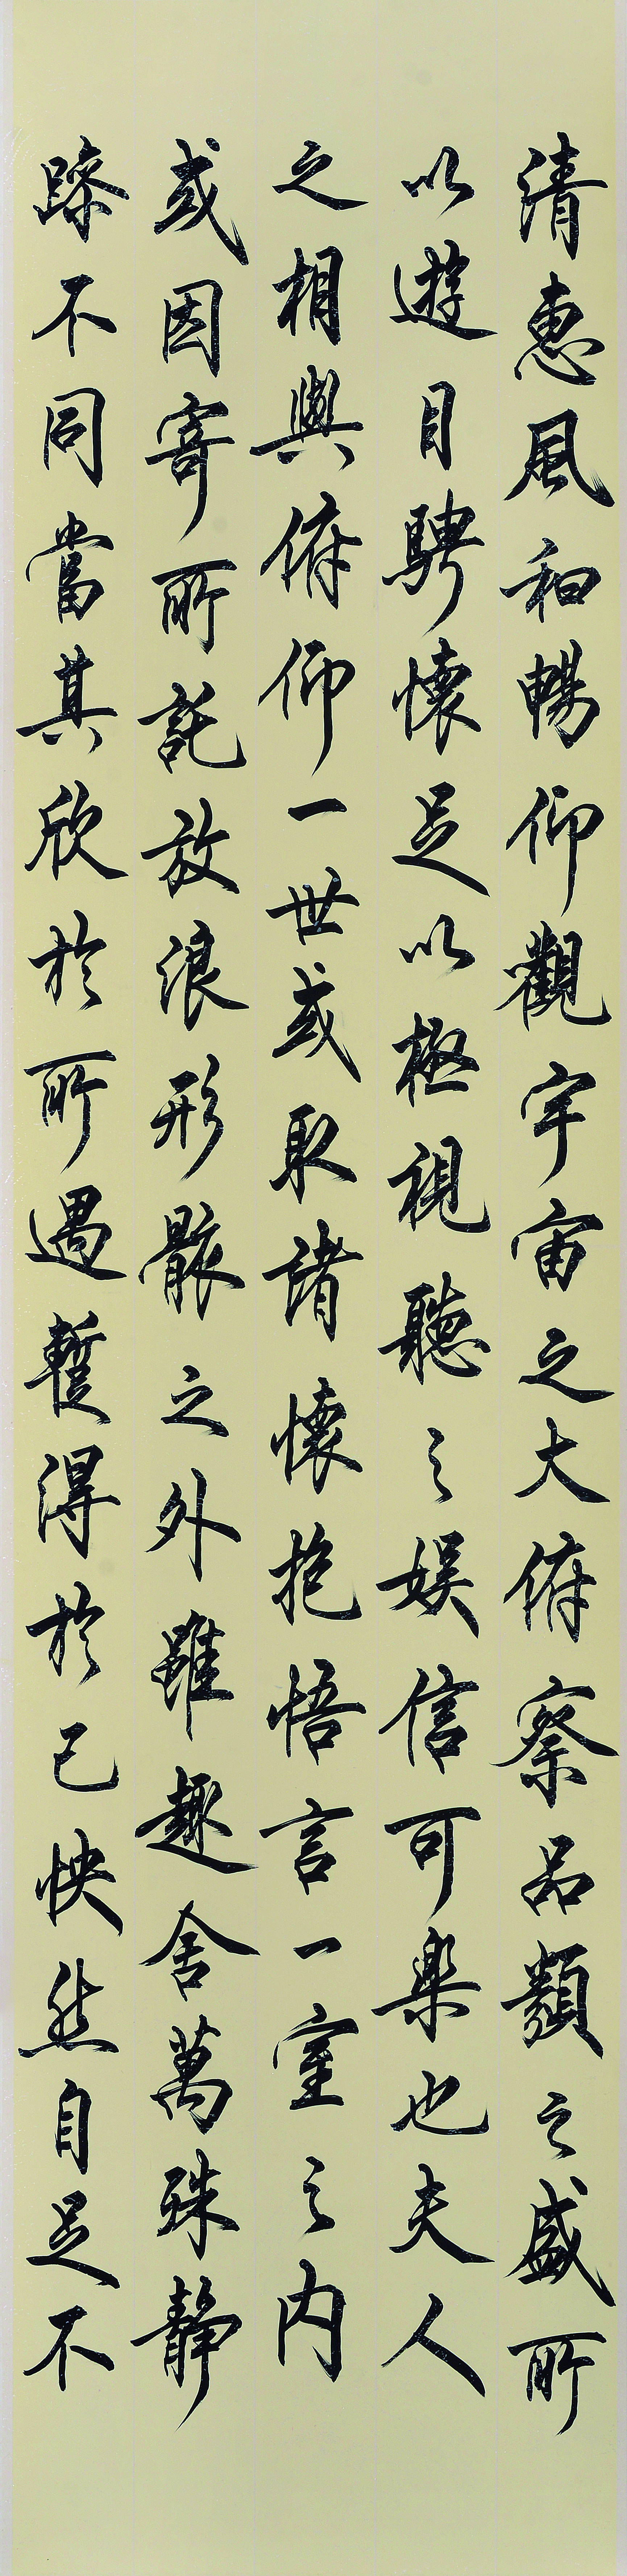 清惠風和暢仰觀宇宙之大俯察品類之盛所
以遊目騁懷足以極視聽之娛信可樂也夫人
之相與俯仰一世或取諸懷抱悟言一室之內
或因寄所託放浪形骸之外雖趣舍萬殊靜
躁不同當其欣於所遇暫得於己怏然自足不